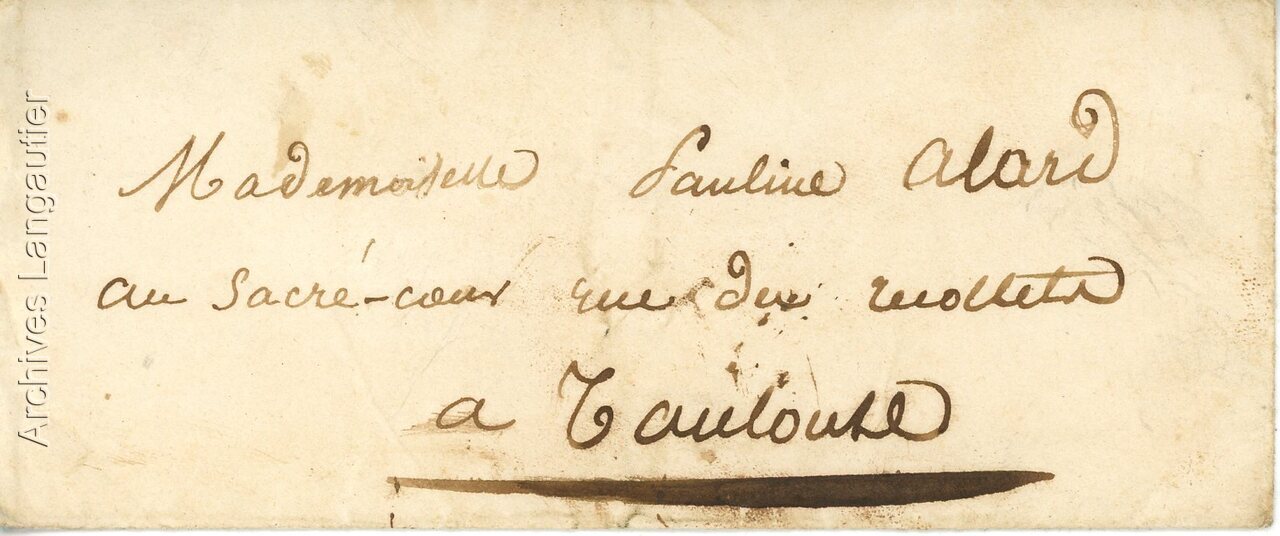 Mademoiselle Pauline Alard
au Sacré-cœur rue des recollets
a Toulouse
Archives Langautier